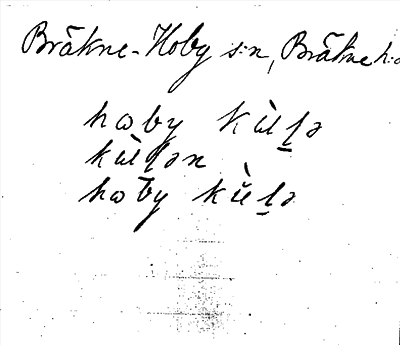 Bräkne-Hoby s:n, Bräkne h:d
hoby kùlə
kùlən
hoby kùlə